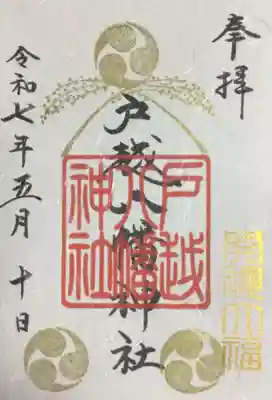 奉拝
戸越八幡神社
戸越
八幡
神社
令和七年五月十日